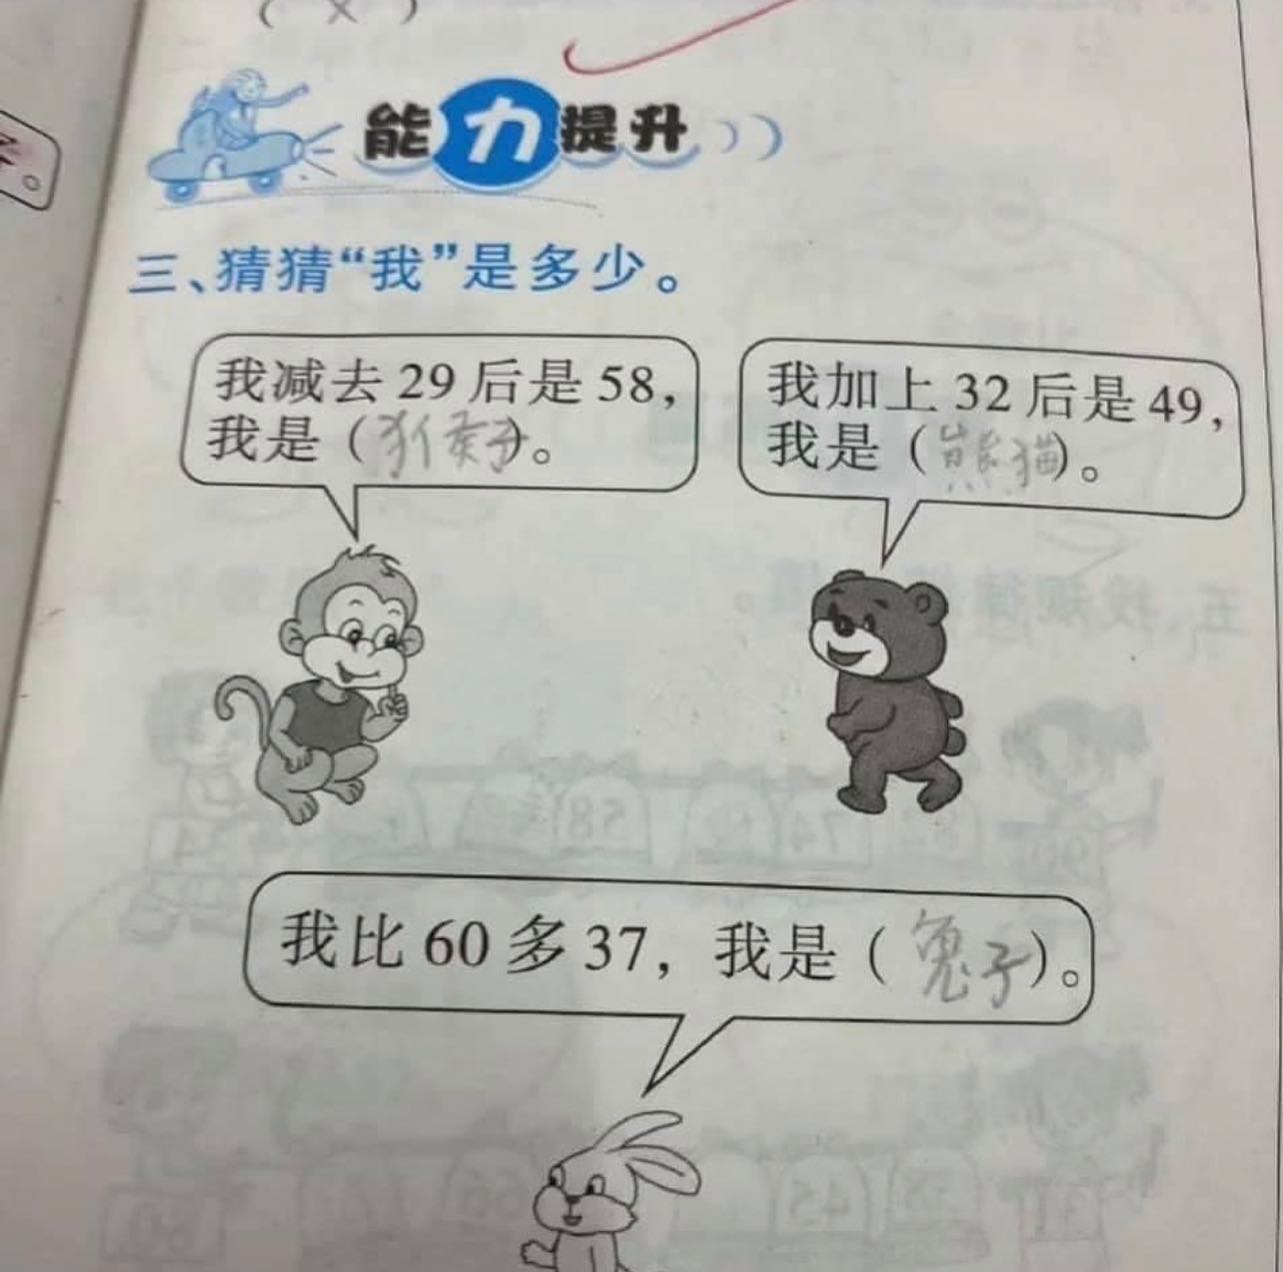 ( × )
能力提升
三、猜猜“我”是多少。
我减去 29 后是 58，
我是（猴子）。
我加上 32 后是 49，
我是（熊猫）。
我比 60 多 37，我是（兔子）。